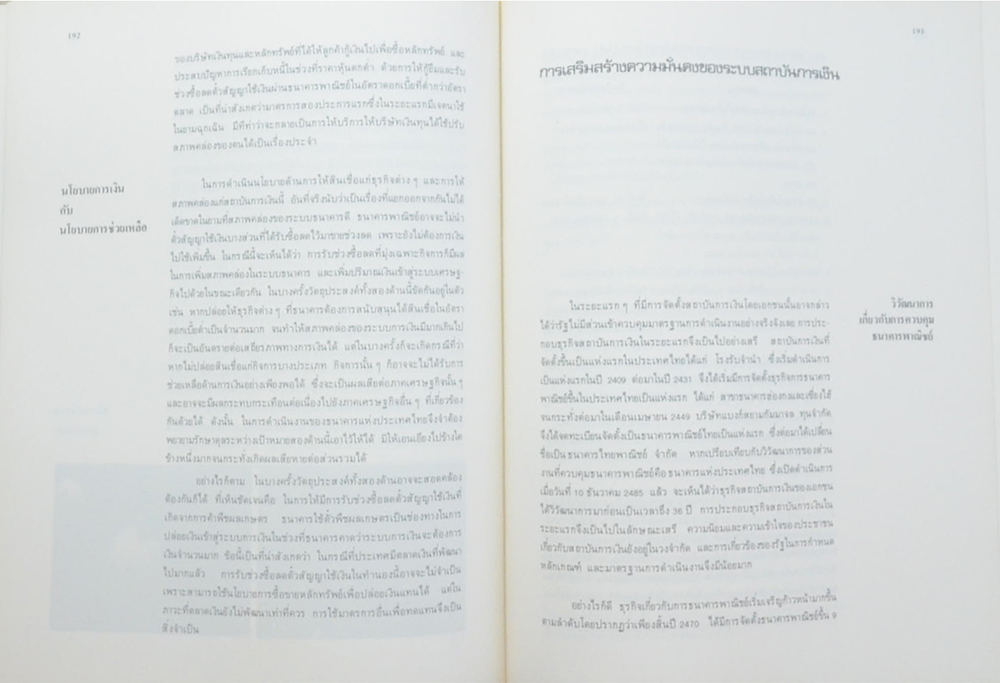 192
ของบริษัทเงินทุนและหลักทรัพย์ที่ได้ให้ลูกค้ากู้เงินไปเพื่อซื้อหลักทรัพย์ และ
ประสบปัญหาการเรียกเก็บหนี้ในช่วงที่ราคาหุ้นตกต่ำ ด้วยการให้กู้ยืมและรับ
ช่วงซื้อลดตั๋วสัญญาใช้เงินผ่านธนาคารพาณิชย์ในอัตราดอกเบี้ยที่ต่ำกว่าอัตรา
ตลาด เป็นที่น่าสังเกตว่ามาตรการสองประการแรกซึ่งในระยะแรกมีเจตนาใช้
ในยามฉุกเฉิน มีทีท่าว่าจะกลายเป็นการให้บริการให้บริษัทเงินทุนได้ใช้ปรับ
สภาพคล่องของตนได้เป็นเรื่องประจำ
นโยบายการเงิน
กับ
นโยบายการช่วยเหลือ
ในการดำเนินนโยบายด้านการให้สินเชื่อแก่ธุรกิจต่าง ๆ และการให้
สภาพคล่องแก่สถาบันการเงินนี้ อันที่จริงนับว่าเป็นเรื่องที่แยกออกจากกันไม่ได้
เด็ดขาดในยามที่สภาพคล่องของระบบธนาคารดี ธนาคารพาณิชย์อาจจะไม่นำ
ตั๋วสัญญาใช้เงินบางส่วนที่ได้รับซื้อลดไว้มาขายช่วงลด เพราะยังไม่ต้องการเงิน
ไปใช้เพิ่มขึ้น ในกรณีนี้จะเห็นได้ว่า การรับช่วงซื้อลดที่มุ่งเฉพาะกิจการก็มีผล
ในการเพิ่มสภาพคล่องในระบบธนาคาร และเพิ่มปริมาณเงินเข้าสู่ระบบเศรษฐ-
กิจไปด้วยในขณะเดียวกัน ในบางครั้งวัตถุประสงค์ทั้งสองด้านนี้ขัดกันอยู่ในตัว
เช่น หากปล่อยให้ธุรกิจต่าง ๆ ที่ธนาคารต้องการสนับสนุนได้สินเชื่อในอัตรา
ดอกเบี้ยต่ำเป็นจำนวนมาก จนทำให้สภาพคล่องของระบบการเงินมีมากเกินไป
ก็จะเป็นอันตรายต่อเสถียรภาพทางการเงินได้ แต่ในบางครั้งก็จะเกิดกรณีที่ว่า
หากไม่ปล่อยสินเชื่อแก่กิจการบางประเภท กิจการนั้น ๆ ก็อาจจะไม่ได้รับการ
ช่วยเหลือด้านการเงินอย่างเพียงพอได้ ซึ่งจะเป็นผลเสียต่อภาคเศรษฐกิจนั้น ๆ
และอาจจะมีผลกระทบกระเทือนต่อเนื่องไปยังภาคเศรษฐกิจอื่น ๆ ที่เกี่ยวข้อง
กันด้วยได้ ดังนั้น ในการดำเนินงานของธนาคารแห่งประเทศไทยจึงจำต้อง
พยายามรักษาดุลระหว่างเป้าหมายสองด้านนี้เอาไว้ให้ได้ มิให้เอนเอียงไปข้างใด
ข้างหนึ่งมากจนกระทั่งเกิดผลเสียหายต่อส่วนรวมได้
อย่างไรก็ตาม ในบางครั้งวัตถุประสงค์ทั้งสองด้านอาจจะสอดคล้อง
ต้องกันก็ได้ ที่เห็นชัดเจนคือ ในการให้มีการรับช่วงซื้อลดตั๋วสัญญาใช้เงินที่
เกิดจากการค้าพืชผลเกษตร ธนาคารใช้ตั๋วพืชผลเกษตรเป็นช่องทางในการ
ปล่อยเงินเข้าสู่ระบบการเงินในช่วงที่ธนาคารคาดว่าระบบการเงินจะต้องการ
เงินจำนวนมาก ข้อนี้เป็นที่น่าสังเกตว่า ในกรณีที่ประเทศมีตลาดเงินที่พัฒนา
ไปมากแล้ว การรับช่วงซื้อลดตั๋วสัญญาใช้เงินในทำนองนี้อาจจะไม่จำเป็น
เพราะสามารถใช้นโยบายการซื้อขายหลักทรัพย์เพื่อปล่อยเงินแทนได้ แต่ใน
ภาวะที่ตลาดเงินยังไม่พัฒนาเท่าที่ควร การใช้มาตรการอื่นเพื่อทดแทนจึงเป็น
สิ่งจำเป็น
193
การเสริมสร้างความมั่นคงของระบบสถาบันการเงิน
วิวัฒนาการ
เกี่ยวกับการควบคุม
ธนาคารพาณิชย์
ในระยะแรก ๆ ที่มีการจัดตั้งสถาบันการเงินโดยเอกชนนั้นอาจกล่าว
ได้ว่ารัฐไม่มีส่วนเข้าควบคุมมาตรฐานการดำเนินงานอย่างจริงจังเลย การประ-
กอบธุรกิจสถาบันการเงินในระยะแรกจึงเป็นไปอย่างเสรี สถาบันการเงินที่
จัดตั้งขึ้นเป็นแห่งแรกในประเทศไทยได้แก่ โรงรับจำนำ ซึ่งเริ่มดำเนินการ
เป็นแห่งแรกในปี 2409 ต่อมาในปี 2431 จึงได้เริ่มมีการจัดตั้งธุรกิจการธนาคาร
พาณิชย์ขึ้นในประเทศไทยเป็นแห่งแรก ได้แก่ สาขาธนาคารฮ่องกงและเซี่ยงไฮ้
จนกระทั่งต่อมาในเดือนเมษายน 2449 บริษัทแบงก์สยามกัมมาจล ทุนจำกัด
จึงได้จดทะเบียนจัดตั้งเป็นธนาคารพาณิชย์ไทยเป็นแห่งแรก ซึ่งต่อมาได้เปลี่ยน
ชื่อเป็น ธนาคารไทยพาณิชย์ จำกัด หากเปรียบเทียบกับวิวัฒนาการของส่วน
งานที่ควบคุมธนาคารพาณิชย์คือ ธนาคารแห่งประเทศไทย ซึ่งเปิดดำเนินการ
เมื่อวันที่ 10 ธันวาคม 2485 แล้ว จะเห็นได้ว่าธุรกิจสถาบันการเงินของเอกชน
ได้วิวัฒนาการมาก่อนเป็นเวลาถึง 36 ปี การประกอบธุรกิจสถาบันการเงินใน
ระยะแรกจึงเป็นไปในลักษณะเสรี ความนิยมและความเข้าใจของประชาชน
เกี่ยวกับสถาบันการเงินยังอยู่ในวงจำกัด และการเกี่ยวข้องของรัฐในการกำหนด
หลักเกณฑ์ และมาตรฐานการดำเนินงานจึงมีน้อยมาก
อย่างไรก็ดี ธุรกิจเกี่ยวกับการธนาคารพาณิชย์เริ่มเจริญก้าวหน้ามากขึ้น
ตามลำดับโดยปรากฏว่าเพียงสิ้นปี 2470 ได้มีการจัดตั้งธนาคารพาณิชย์ขึ้น 9